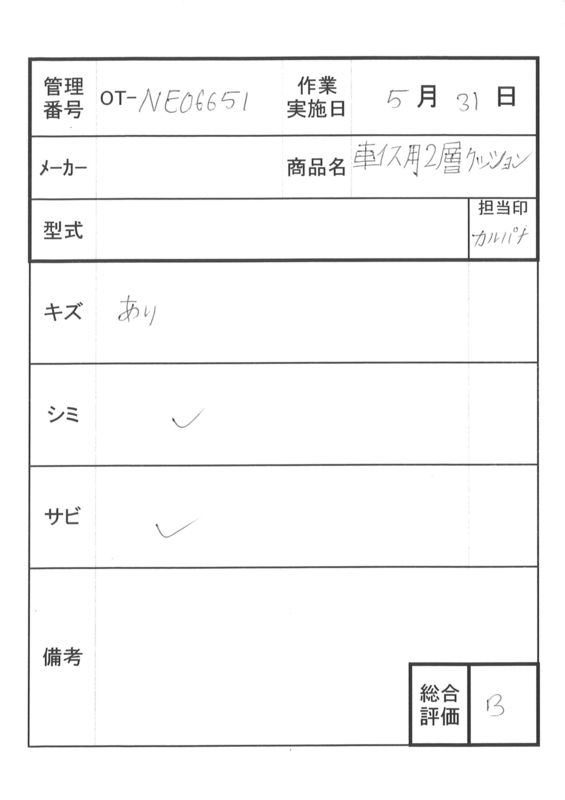 管理番号 OT-NE06651 作業実施日 5月31日
メーカー 商品名 車イス用2層クッション
型式 担当印 カルパナ
キズ あり
シミ ✓
サビ ✓
備考
総合評価 B